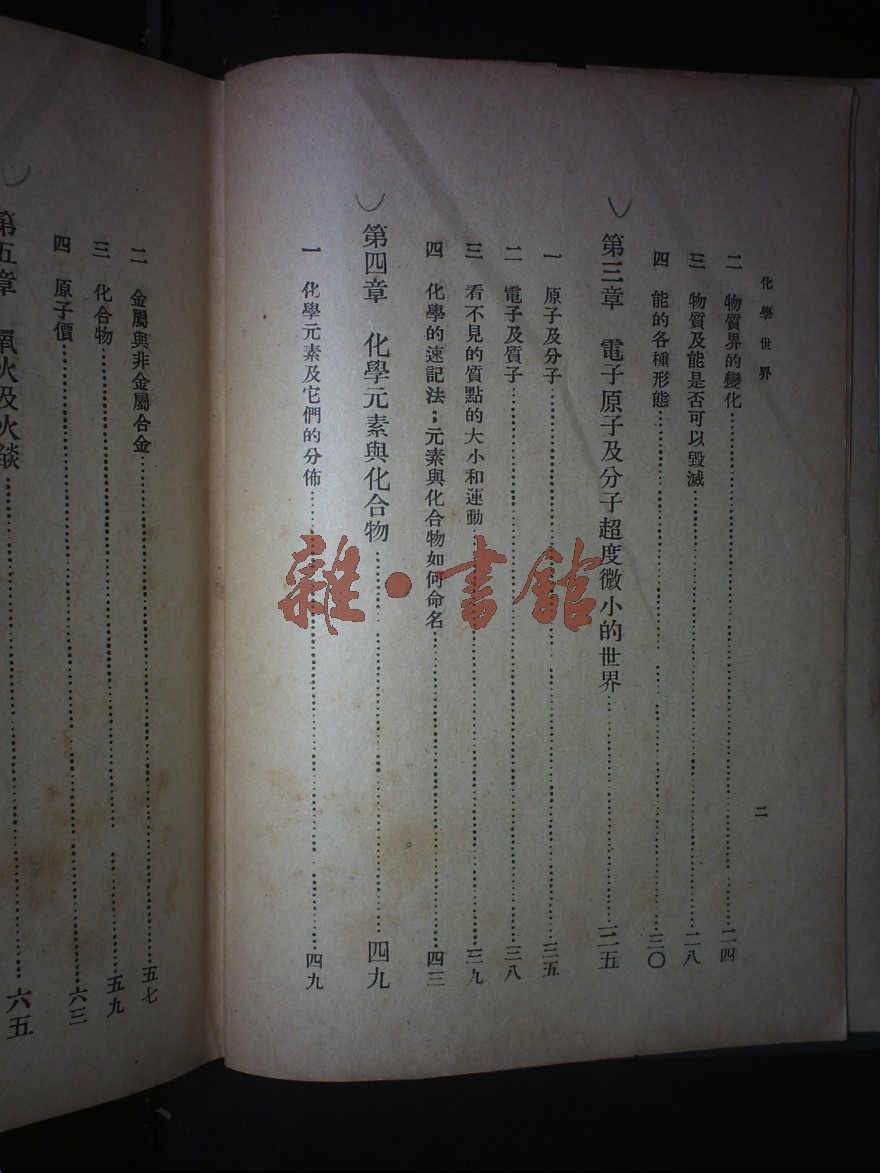 化學世界
二
二 物質界的變化……二四
三 物質及能是否可以毀滅……二八
四 能的各種形態……三〇
第三章 電子原子及分子超度微小的世界……三五
一 原子及分子……三五
二 電子及質子……三八
三 看不見的質點的大小和運動……三九
四 化學的速記法；元素與化合物如何命名……四三
第四章 化學元素與化合物……四九
一 化學元素及它們的分佈……四九
二 金屬與非金屬合金……五七
三 化合物……五九
四 原子價……六三
第五章 氧火及火燄……六五
雜·書館